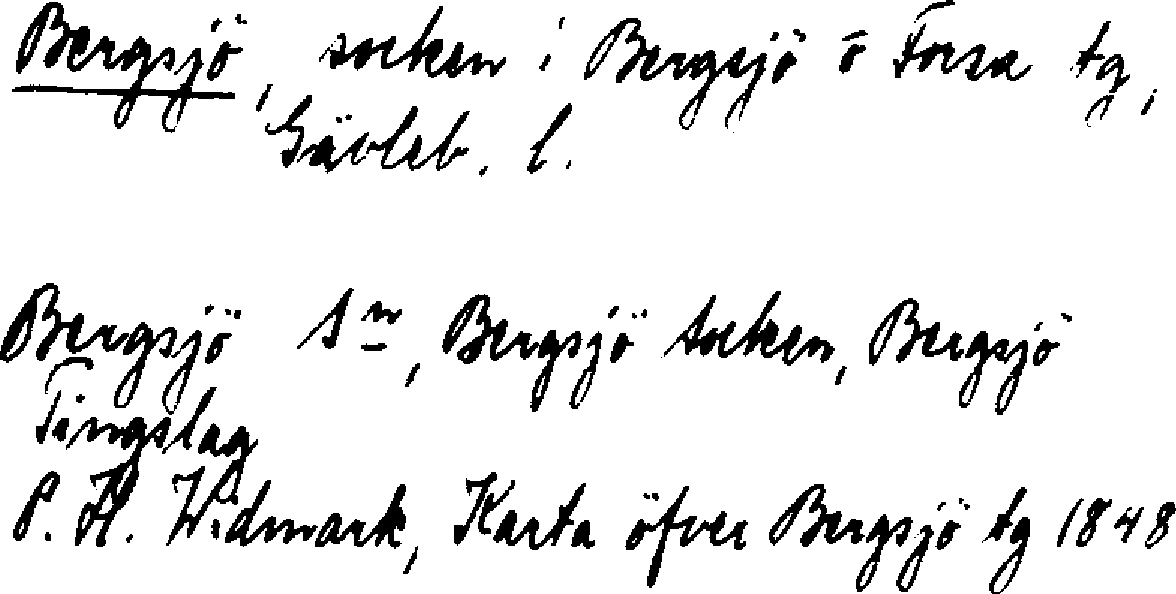 Bergsjö, socken i Bergsjö o Forsa tg,
Gävleb. l.
Bergsjö Sn, Bergsjö socken, Bergsjö
Tingslag
P. H. Widmark, Karta öfver Bergsjö tg 1848